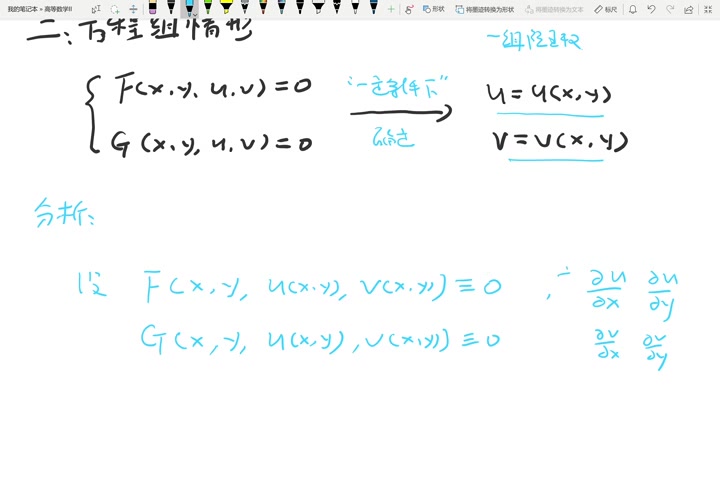 我的笔记本 » 高等数学II
形状
将图迹转换为形状
将图迹转换为文本
标尺
二:方程组情形
一组隐函数
F(x,y,u,v)=0 "一定条件下" u=u(x,y)
G(x,y,u,v)=0 确定 v=v(x,y)
分析:
设 F(x,y,u(x,y),v(x,y))≡0, 求 ∂u/∂x ∂u/∂y
G(x,y,u(x,y),v(x,y))≡0 ∂v/∂x ∂v/∂y